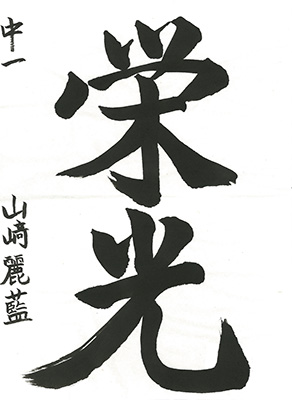 栄光
中一 山﨑麗藍